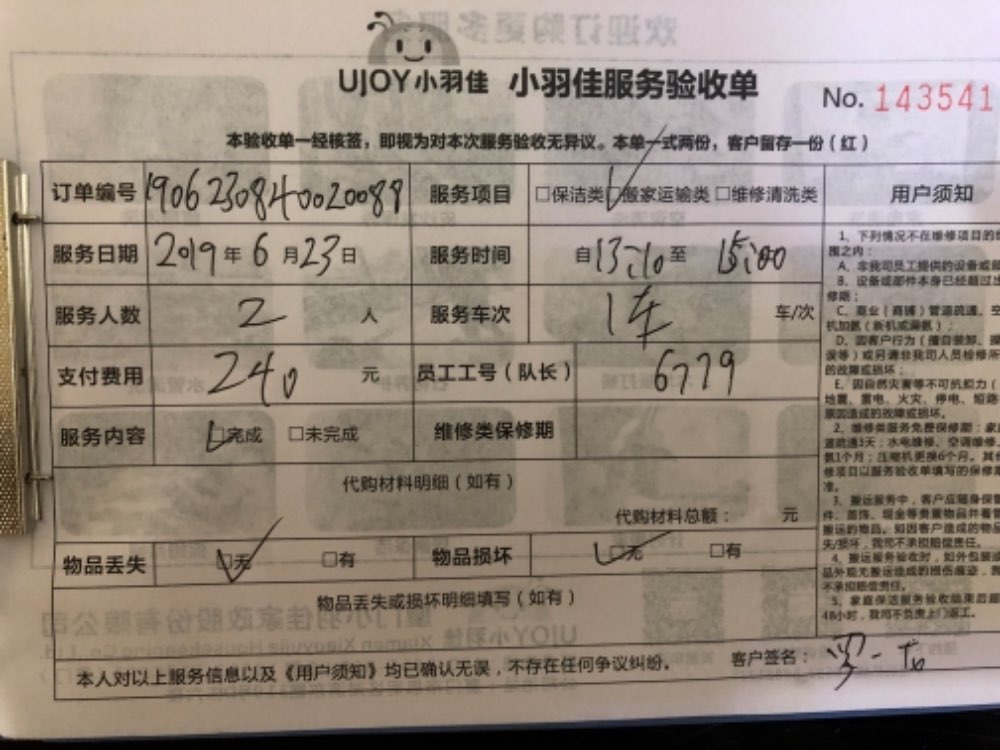 UJOY小羽佳 小羽佳服务验收单
No. 143541
本验收单一经核签，即视为对本次服务验收无异议。本单一式两份，客户留存一份（红）
订单编号 1906230840020088 服务项目 □保洁类 ☑搬家运输类 □维修清洗类 用户须知
服务日期 2019年6月23日 服务时间 自13:10至15:00
服务人数 2 人 服务车次 1车 车/次
支付费用 240 元 员工工号（队长） 6779
服务内容 ☑完成 □未完成 维修类保修期
代购材料明细（如有）
代购材料总额： 元
物品丢失 ☑无 □有 物品损坏 ☑无 □有
物品丢失或损坏明细填写（如有）
本人对以上服务信息以及《用户须知》均已确认无误，不存在任何争议纠纷。 客户签名：
1、下列情况不在维修项目的
围之内：
A、非我司员工提供的设备或
B、设备或部件本身已经超过
修期；
C、商业（商铺）管道疏通、空
机加氟（新机或漏氟）；
D、因客户行为（擅自装卸、
误等）或另请非我司人员检修所
的故障或损坏；
E、因自然灾害等不可抗能力（
地震、雷电、火灾、停电、短路
原因造成的故障或损坏。
2、维修类服务免费保修期：家
道疏通3天；水电维修、空调维修
氟1个月；压缩机更换6个月。其
修项目以服务验收单填写的保修
准。
3、搬运服务中，客户应随身保
件、首饰、现金等贵重物品并看
搬运的物品。如因客户造成的物
失/损坏，我司不承担赔偿责任。
4、搬运服务验收时，如外包装
品外观无搬运造成的损伤痕迹，
不承担赔偿责任。
5、家庭保洁服务验收结束后
48小时，我司不负责上门返工。